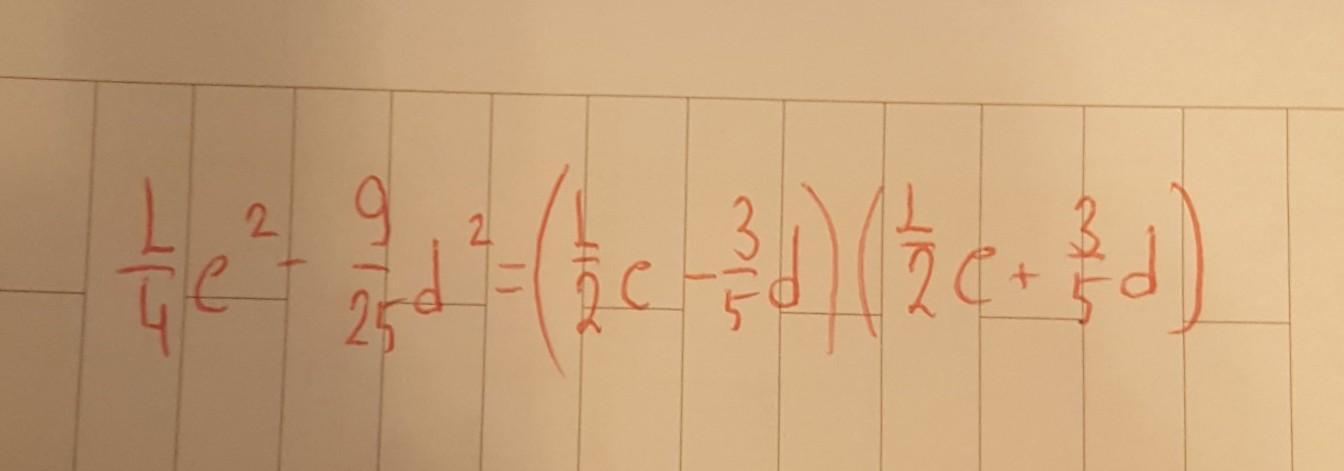 1/4 c² - 9/25 d² = (1/2 c - 3/5 d)(1/2 c + 3/5 d)